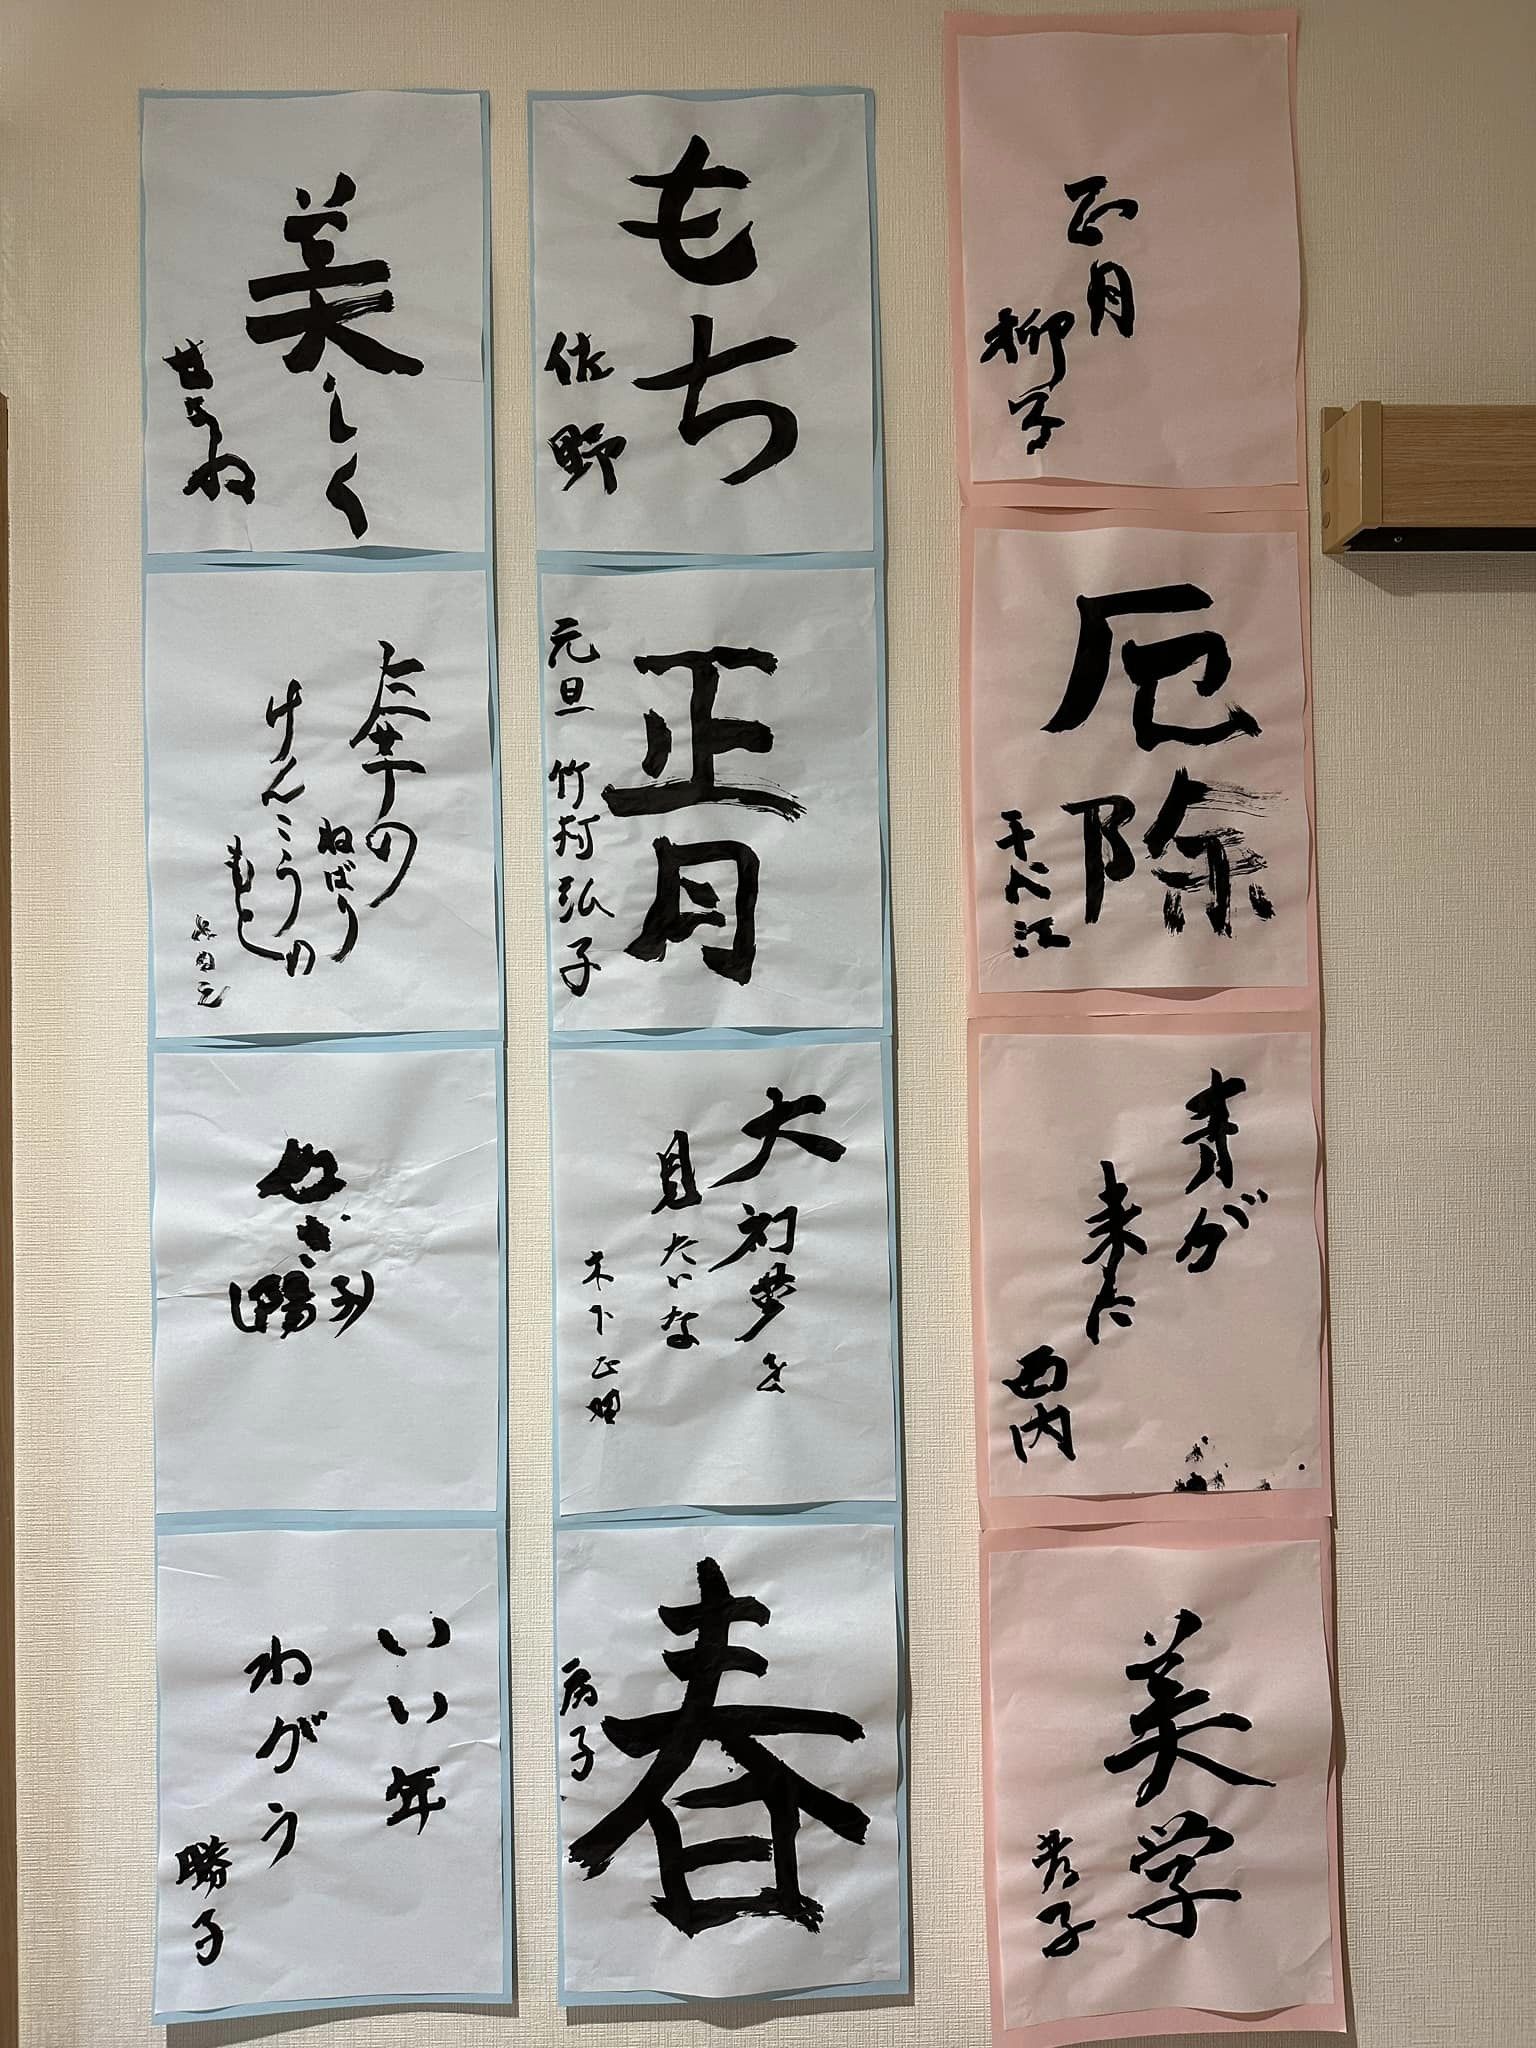 正月
柳子
厄除
千代江
青が
来た
西内
美学
芳子
もち
佐野
正月
元旦 竹村弘子
大初夢を
見たいな
木下正明
春
房子
美しく
せきね
ねばり
けんこうの
もと
ねぎ
陽子
いい年
ねがう
勝子